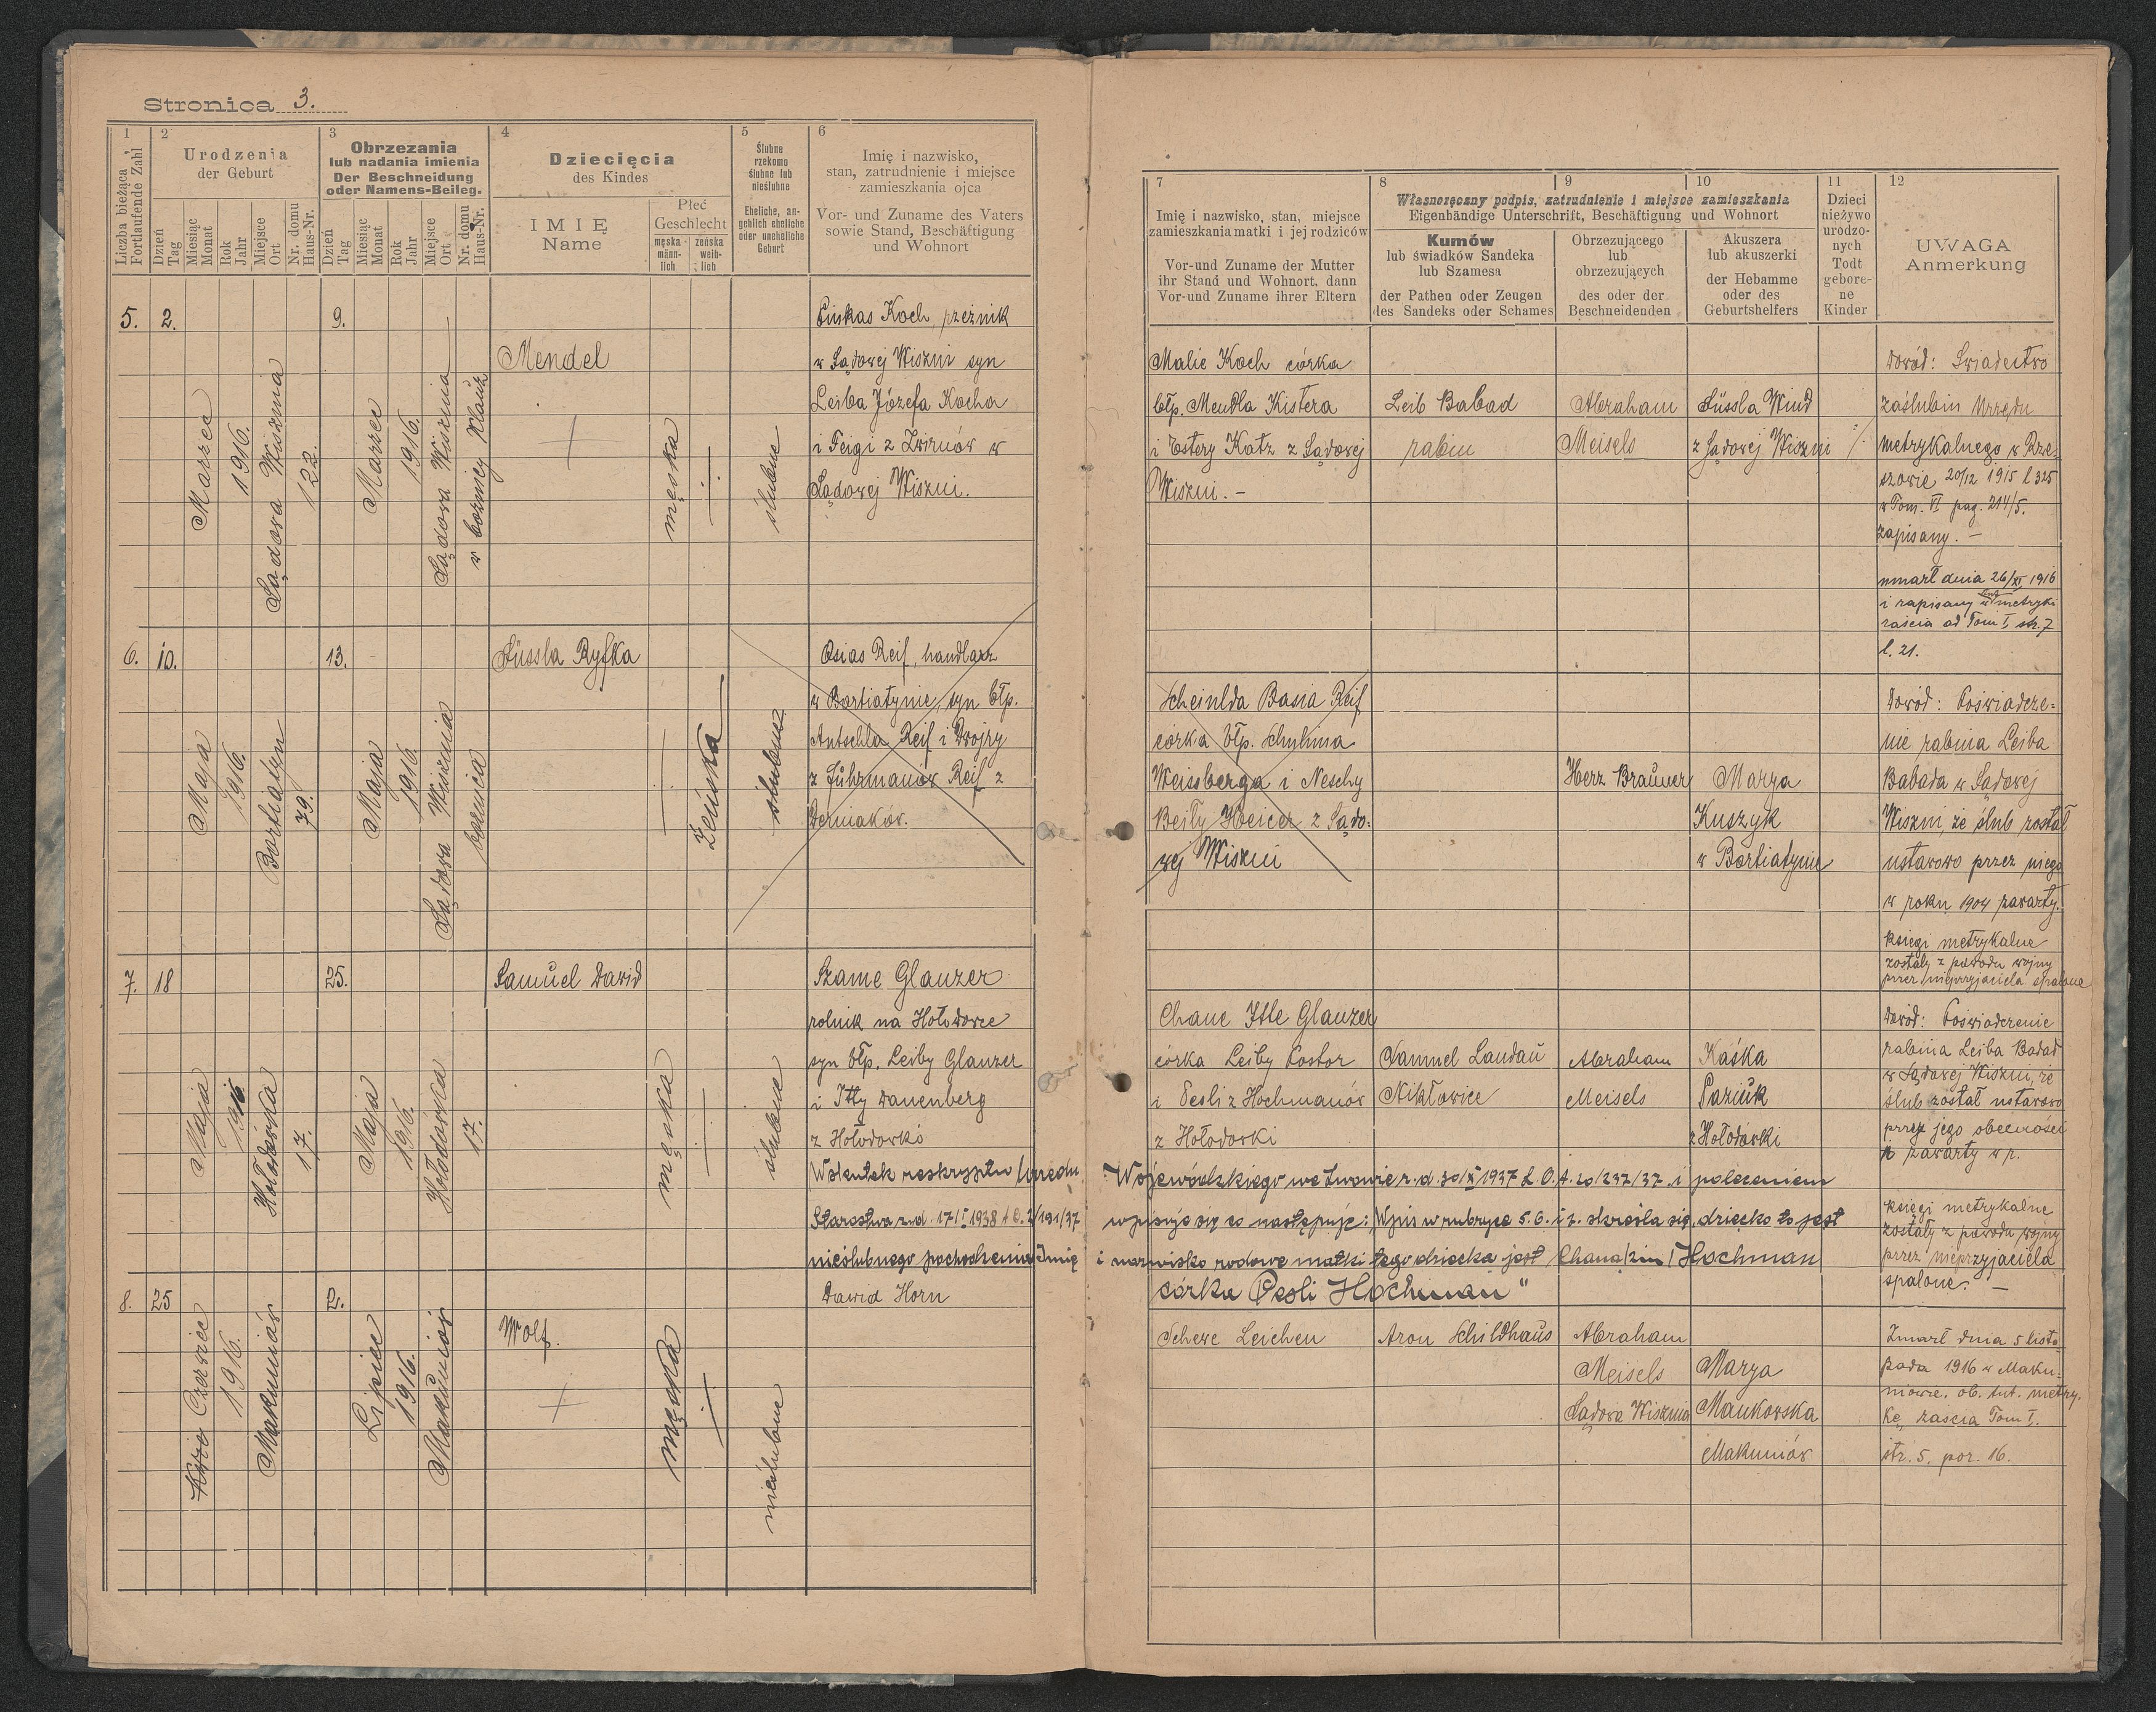 Stronica 3.
1
Liczba bieżąca
Fortlaufende Zahl
2
Urodzenia
der Geburt
Dzień
Tag
Miesiąc
Monat
Rok
Jahr
Miejsce
Ort
Nr. domu
Haus-Nr.
3
Obrzezania
lub nadania imienia
Der Beschneidung
oder Namens-Beileg.
Dzień
Tag
Miesiąc
Monat
Rok
Jahr
Miejsce
Ort
Nr. domu
Haus-Nr.
4
Dziecięcia
des Kindes
IMIĘ
Name
Płeć
Geschlecht
męska
männ-
lich
żeńska
weib-
lich
5
Ślubne
rzekomo
ślubne lub
nieślubne
Eheliche, an-
geblich eheliche
oder uneheliche
Geburt
6
Imię i nazwisko,
stan, zatrudnienie i miejsce
zamieszkania ojca
Vor- und Zuname des Vaters
sowie Stand, Beschäftigung
und Wohnort
7
Imię i nazwisko, stan, miejsce
zamieszkania matki i jej rodziców
Vor-und Zuname der Mutter
ihr Stand und Wohnort, dann
Vor-und Zuname ihrer Eltern
8
9
10
Własnoręczny podpis, zatrudnienie i miejsce zamieszkania
Eigenhändige Unterschrift, Beschäftigung und Wohnort
Kumów
lub świadków Sandeka
lub Szamesa
der Pathen oder Zeugen
des Sandeks oder Schames
Obrzezującego
lub
obrzezujących
des oder der
Beschneidenden
Akuszera
lub akuszerki
der Hebamme
oder des
Geburtshelfers
11
Dzieci
nieżywo
urodzo-
nych
Todt
gebore-
ne
Kinder
12
UWAGA
Anmerkung
5.
2.
Marzec
1916.
Sądowa Wisznia
122.
9.
Marzec
1916.
Sądowa Wisznia
w bożnicy Klauz
Mendel
męska
ślubne
Koch, rzeźnik
w Sądowej Wiszni syn
Leiba Józefa Kocha
i Feigi z Zwirnów w
Sądowej Wiszni.
Malie Koch córka
błp. Mendla Kistera
i Estery Katz z Sądowej
Wiszni. –
Leib Babad
rabin
Abraham
Meisels
Süssla Wind
z Sądowej Wiszni
Dowód: Swiadectwo
zaślubin Urzędu
metrykalnego w Rze-
szowie 20/12 1915 l 325
w Tom. VI pag. 214/5.
zapisany. –
umarł dnia 26/XI 1916
i zapisany w metryki
zaścia ad Tom I, str. 7
l. 21.
6.
10.
Maja
1916.
Bortiatyn
79.
13.
Maja
1916.
Sądowa Wisznia
bożnica
Süssla Ryfka
Żeńska
ślubne
Osias Reif, handlarz
w Bortiatynie, syn błp.
Antschla Reif i Dwojry
z Führmanów Reif z
Derniaków.
Scheindla Basia Reif
córka błp. Schulima
Weissberga i Neschy
Beily Heicer z Sądo-
wej Wiszni
Herz Brauner
Marya
Kuszyk
w Bortiatynie
Dowód: Poświadcze-
nie rabina Leiba
Babada w Sądowej
Wiszni, że ślub został
ustawowo przez niego
w roku 1904 zawarty.
Księgi metrykalne
zostały z powodu wojny
przez nieprzyjaciela spalone
7.
18
Maja
1916.
Hołodówka
17.
25.
Maja
1916.
Hołodówka
17.
Samuel Dawid
męska
ślubne
Szame Glanzer
rolnik na Hołodowce
syn błp. Leiby Glanzer
i Itty Wanenberg
z Hołodowki
Chane Itte Glanzer
córka Leiby Postor
i Pesli z Hochmanów
z Hołodowki
Samuel Landau
Nikłowice
Abraham
Meisels
Kaśka
Paziuk
z Hołodówki
Dowód: Poświadczenie
rabina Leiba Babad
w Sądowej Wiszni, że
ślub został ustawowo
przy jego obecności
zawarty w r.
Księgi metrykalne
zostały z powodu wojny
przez nieprzyjaciela
spalone. –
Wskutek reskryptu Urzędu Wojewódzkiego we Lwowie z.d. 30/X 1937 L. O.A. 20/237/37 i poleceniem
Starostwa z.d. 17/I 1938 A.O. 2/191/37 wpisuje się co następuje: „Wpis w rubryce 5. 6. i 7. skreśla się, dziecko to jest
nieślubnego pochodzenia Imię i nazwisko rodowe matki tego dziecka jest Chana /2im/ Hochman
córka Pesli Hochman"
8.
25
Czerwiec
1916.
Makuniów
2.
Lipiec
1916.
Makuniów
Wolf.
męska
nieślubne
Dawid Horn
Schewe Leichen
Aron Schildhaus
Abraham
Meisels
Sądowa Wisznia
Marya
Mankowska
Makuniów
Zmarł dnia 5 listo-
pada 1916 w Maku-
niowie. ob. tut. metry-
kę zascia Tom I.
str. 5. poz. 16.